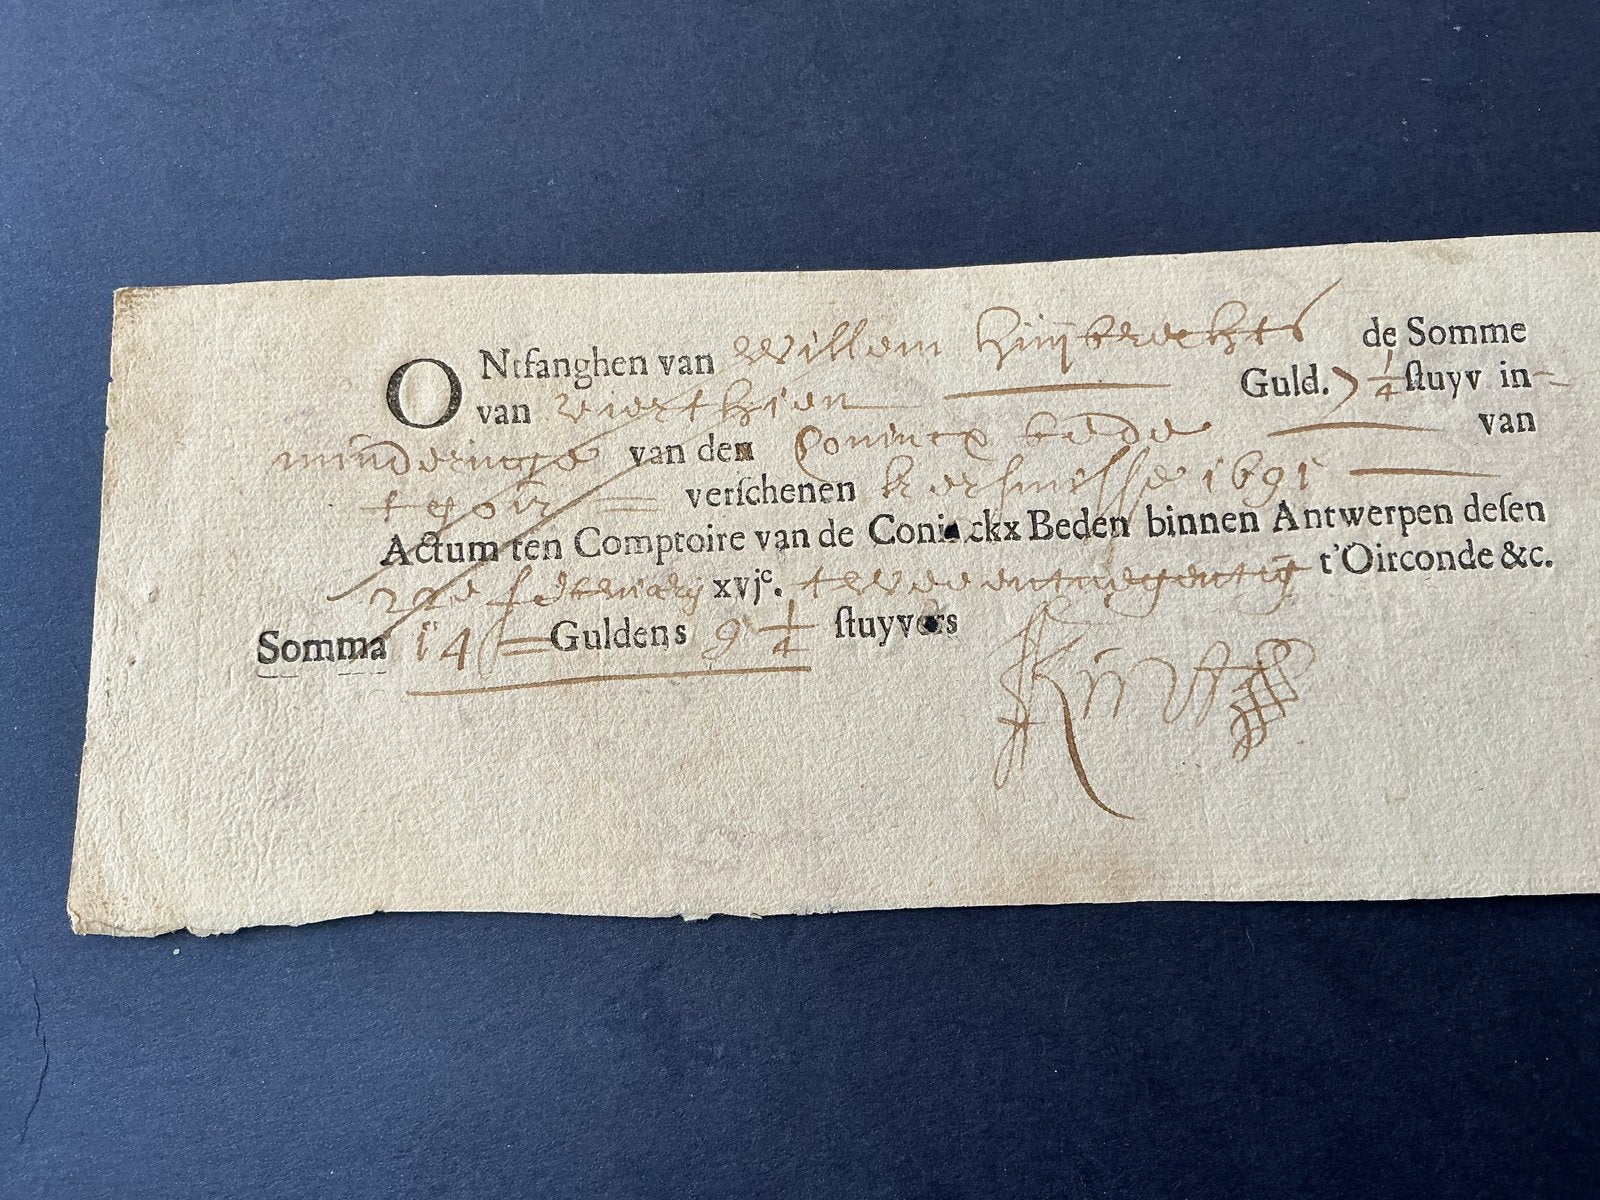 ONtfanghen van Willem Huijbrechts de Somme
van vierthien Guld. 9 1/4 ſtuyv in
minderinge van den Conincx bede van
verſchenen kersmisse 1691
Actum ten Comptoire van de Coninckx Beden binnen Antwerpen deſen
22e february xvjc. tweeentnegentig t'Oirconde &c.
Somma 14 Guldens 9 1/4 ſtuyvers